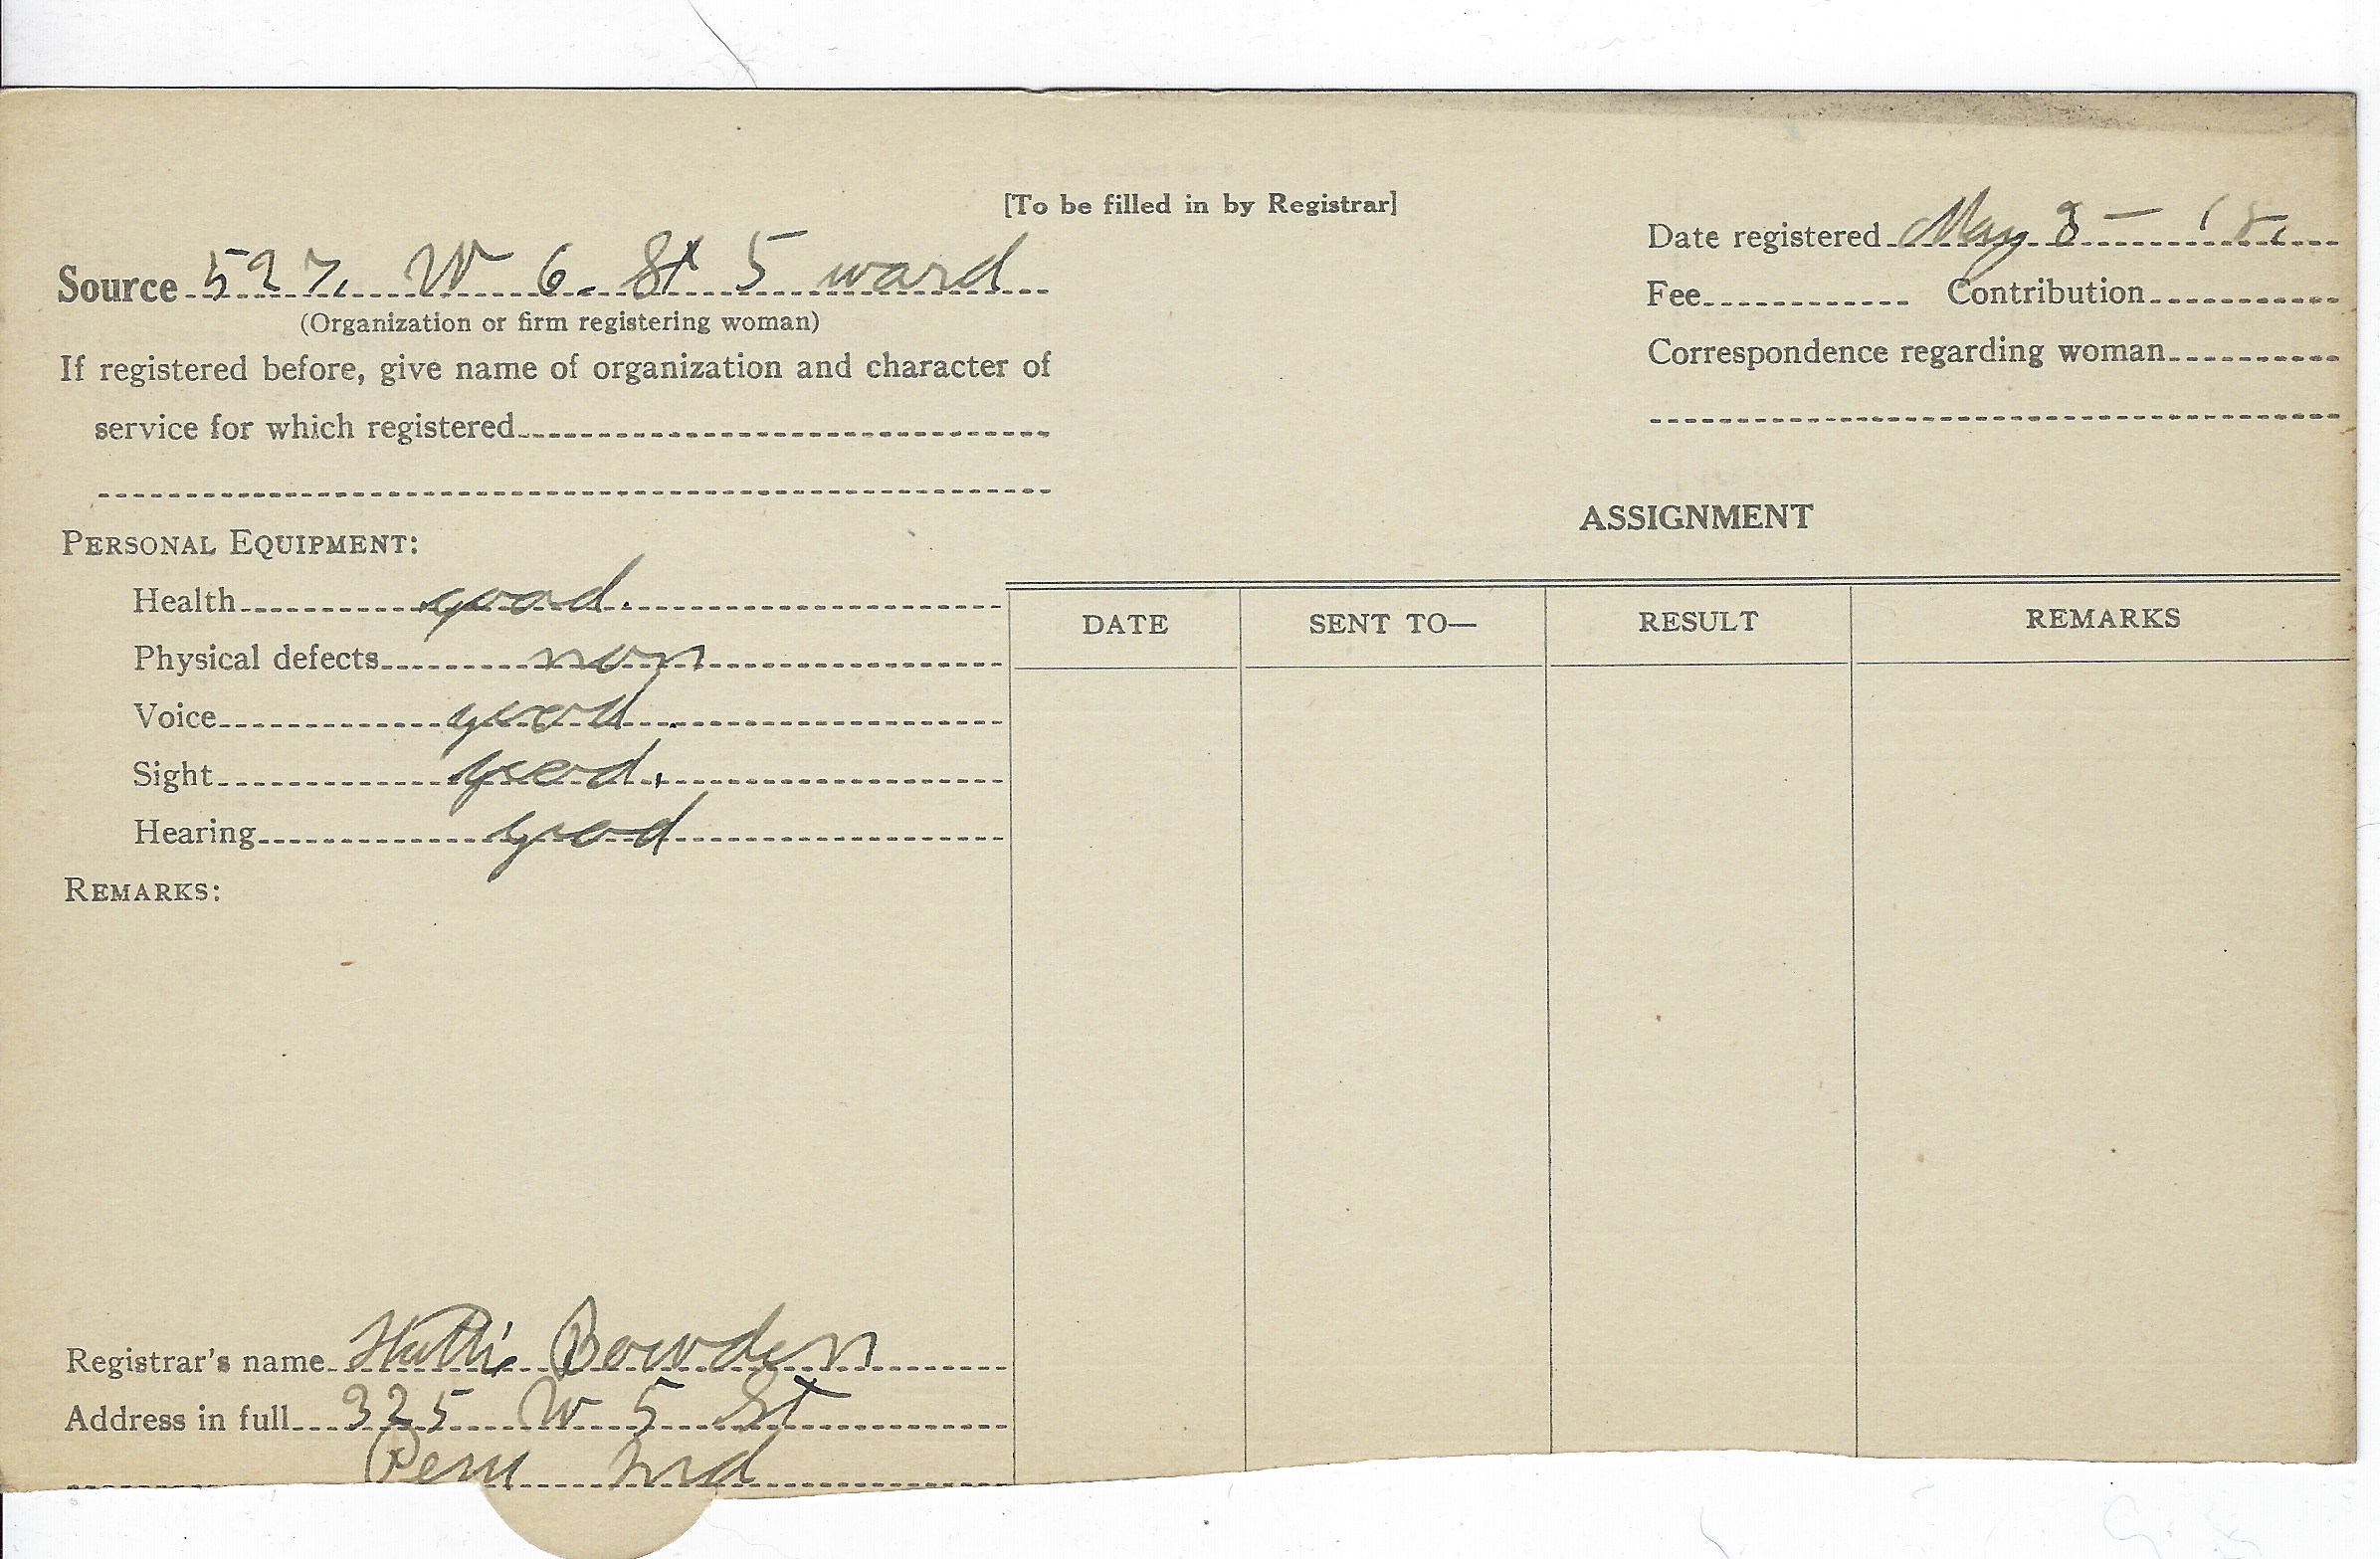 [To be filled in by Registrar]
Source 527. W 6. St 5 ward
(Organization or firm registering woman)
If registered before, give name of organization and character of
service for which registered
Date registered May 8 -
Fee Contribution
Correspondence regarding woman
PERSONAL EQUIPMENT:
Health good.
Physical defects non
Voice good.
Sight good.
Hearing good
REMARKS:
Registrar's name Hattie Bowden
Address in full 325 W 5 St
Peru Ind
ASSIGNMENT
DATE SENT TO— RESULT REMARKS